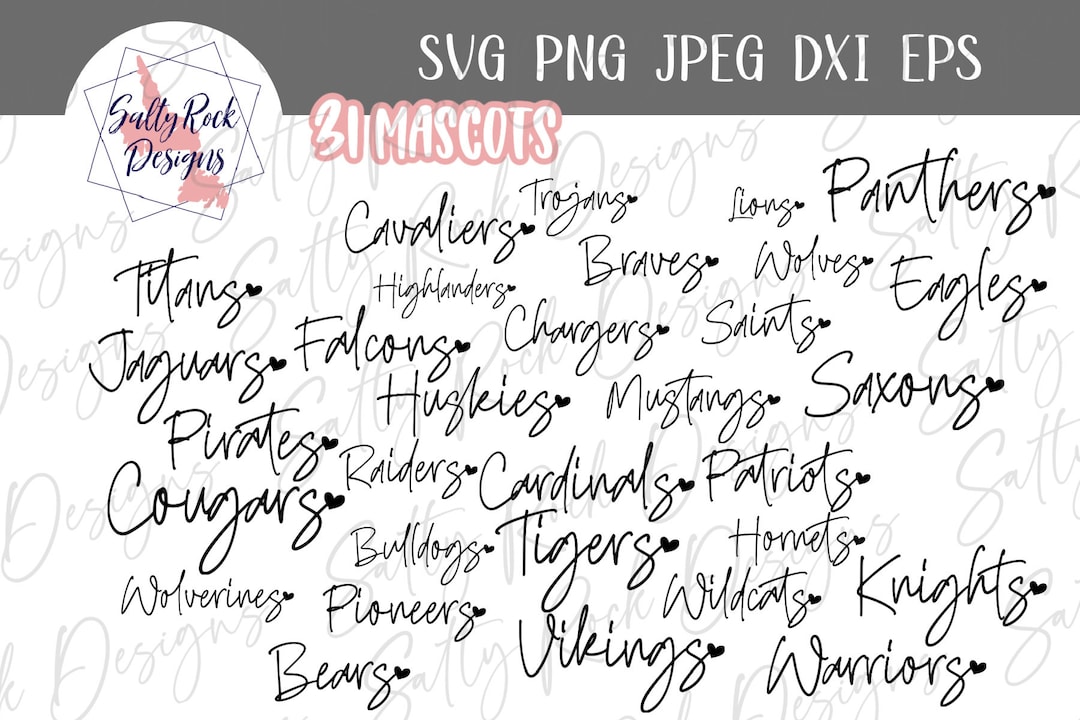 SVG PNG JPEG DXI EPS
Salty Rock
Designs
31 MASCOTS
Trojans
Lions
Panthers
Cavaliers
Braves
Wolves
Titans
Highlanders
Eagles
Chargers
Saints
Jaguars
Falcons
Huskies
Mustangs
Saxons
Pirates
Raiders
Cardinals
Patriots
Cougars
Bulldogs
Tigers
Hornets
Wolverines
Pioneers
Wildcats
Knights
Bears
Vikings
Warriors
Salty Rock Designs